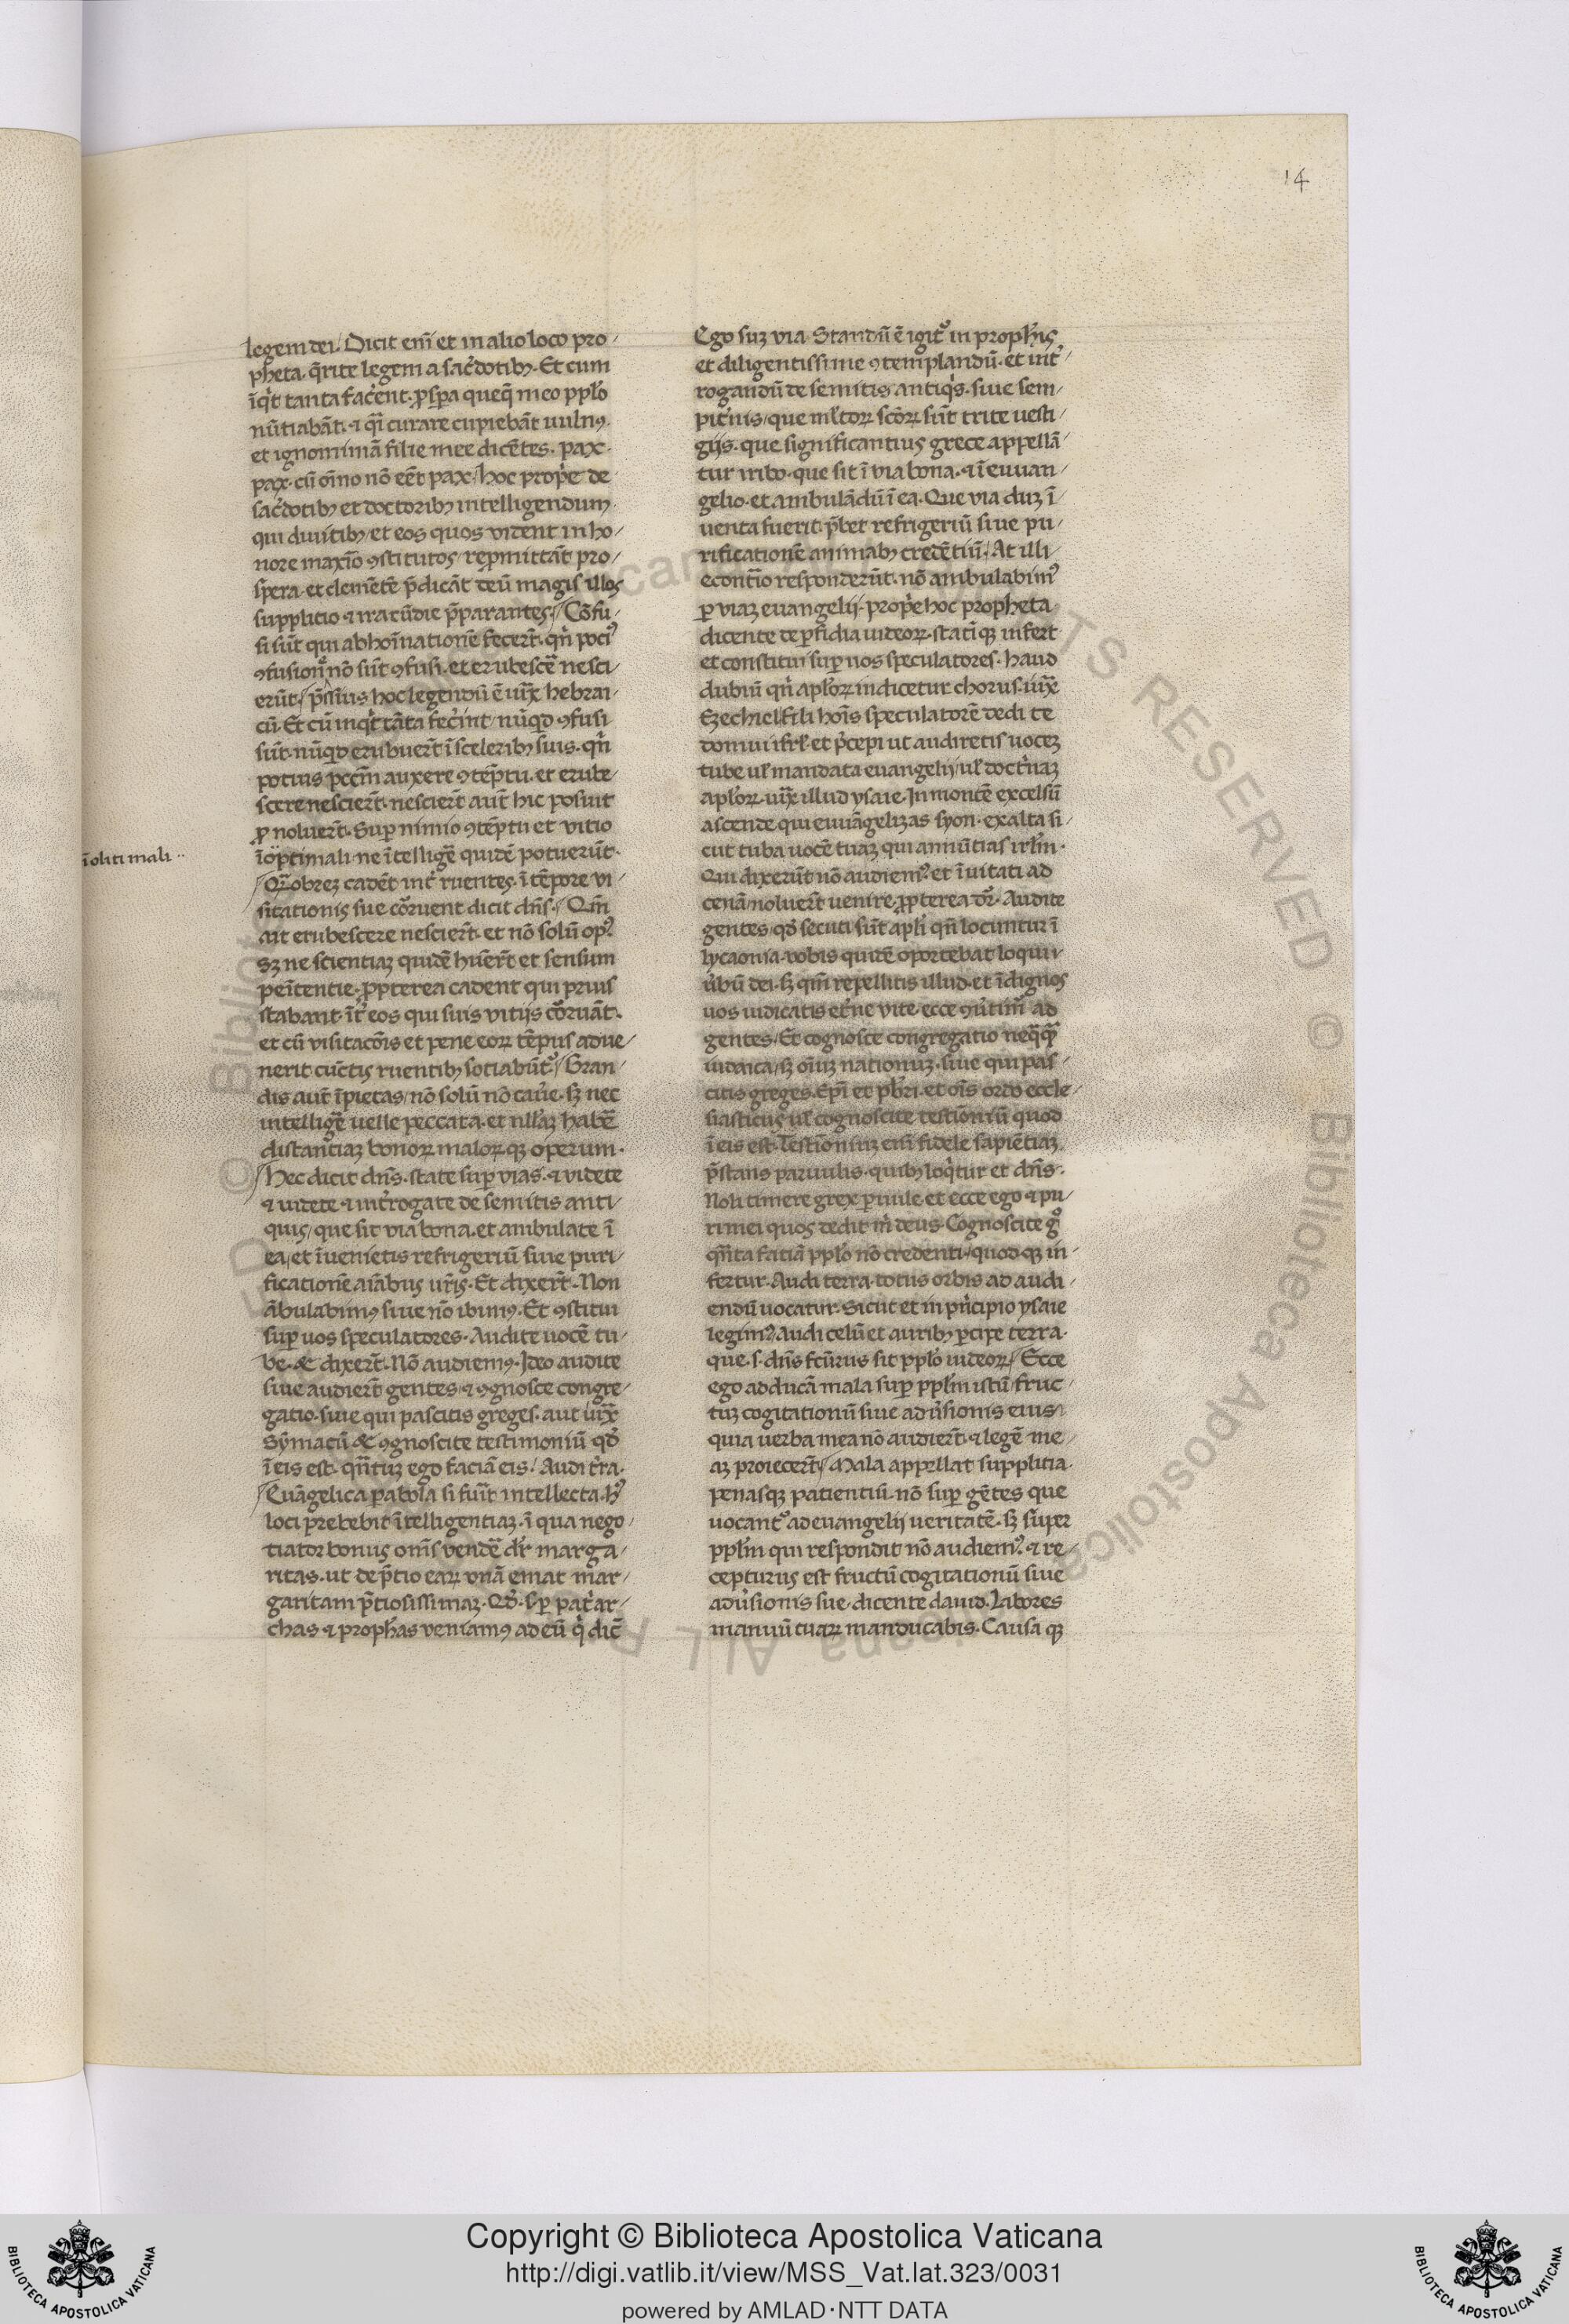 14
legem dei / Dicit eni᷒ et in alio loco pro/
pheta. q̄rite legem a sac᷑dotibȝ. Et cum
īq᷑t tanta fac᷑ent. ꝓsp̱a queq̄ meo ppl᷑o
nūtiabāt. ⁊ q̄i curare cupiebāt uulnꝰ.
et ignominiā filie mee dicētes. pax.
pax. cū oīno nō eēt pax / hoc prop᷑e de
sac᷑dotibȝ et doctoribȝ intelligendum
qui diuitibȝ / et eos quos vident in ho/
nore maxīo ꝯstitutos / rep̱mittāt pro/
spera. et clemētē p̄dicāt deū magis illos
supplitio ⁊ iracūdie p̄parantes / Cōfu/
si sūt qui abhoīnationē fecer̄t. qn᷑ pociꝰ
ꝯfusion᷑ nō sūt ꝯfusi. et erubescē nesci/
erūt / p̄ssius hoc legendū ē iux᷑ hebrai/
cū. Et cū inq᷑t tāta fec᷑int / nūq᷑d ꝯfusi
sūt. nūq᷑d erubuer̄t ī sceleribȝ suis. qn᷑
potius p̄ccm̄ auxere ꝯtēptu. et erube/
scere nescier̄t. nescier̄t aut᷑ hic posuit
ꝓ noluer̄t. Sup̱ nimio ꝯtēptu et vitio
īoliti mali ..
īoptimali. ne ītelligē quidē potuerūt.
Q᷑obrez cadēt int᷑ ruentes. ī tēpore vi/
sitationis sue cōruent dicit dn̄s / Qm̄
ait erubescere nescier̄t. et nō solū opꝰ
sȝ ne scientiaz quidē huer̄t et sensum
penītentie. ꝓpterea cadent qui prius
stabant. īt᷑ eos qui suis vitijs cōruāt.
et cū visitacōis et pene eoꝝ tēpus adue/
nerit cūctis ruentibȝ sotiabūt᷑ / Gran/
dis aut᷑ īpietas / nō solū nō cau᷑e. sȝ nec
intelligē uelle peccata. et nll᷑az habē
distantiaz bonoꝝ maloꝝqȝ operum.
Hec dicit dn̄s. state sup̱ vias. ⁊ videte
⁊ uidete ⁊ int᷑rogate de semitis anti/
quis / que sit via bona. et ambulate ī
ea / et īuenietis refrigeriū siue puri/
ficationē aīabus ur̄is. Et dixer̄t. Non
ābulabimꝰ siue nō ibimꝰ. Et ꝯstitui
sup̱ uos speculatores. Audite uocē tu/
be. & dixer̄t. Nō audiemꝰ. Ideo audite
siue audier̄t gentes / ⁊ ꝯgnosce congre/
gatio. siue qui pascitis greges. aut iux᷑
Sȳmacū & ꝯgnoscite testimoniū qd᷑
ī eis est. qn̄tuz ego faciā eis / Audi t᷑ra.
Euāgelica p̱abola si fuīt intellecta. hꝰ
loci prebebit ītelligentiaz. ī qua nego/
tiator bonus om̄s vendē dr᷑ marga/
ritas. ut de p̄tio eaꝝ vnā emat mar/
garitam p̄tiosissimaz. Qd᷑. s. p̱ pat᷑ar/
chas ⁊ proph᷑as veniamꝰ ad eū q᷑ dic̄
Ego suz via. Standū ē igit᷑ in proph᷑is
et diligentissime ꝯtemplandū. et int᷑/
rogandū de semitis antiq᷑s. siue sem/
pit᷑nis / que ml᷑toꝝ scōꝝ sūt trite uesti/
gijs. que significantius grece appellā/
tur tribo. que sit ī via bona. ⁊ ī euuan/
gelio. et ambulādū ī ea. Que via duz ī/
uenta fuerit. p̄bet refrigeriū siue pu/
rificationē animabȝ credētiū. At illi
econt᷑io responderūt. nō ambulabimꝰ
p̱ viaz euangelij. prop᷑e hoc propheta
dicente de p̱fidia iudeoꝝ. statīqȝ infert
et constitui sup̱ uos speculatores. haud
dubiū qn᷑ apl᷑oꝝ indicetur chorus. iux᷑
Ezechiel. fili hoīs speculatorē dedi te
domui isrl᷑. et p᷑cepi ut audiretis uocez
tube ul᷑ mandata euangelij / ul᷑ doct᷑naz
apl᷑oꝝ. iux᷑ illud ysaie. In montē excelsū
ascende qui euuāgelizas syon. exalta si/
cut tuba uocē tuaz qui annūtias irl᷑m.
Qui dixerūt nō audiemꝰ. et īuitati ad
cenā / noluer̄t uenire. ꝓpterea dr᷑. Audite
gentes / qd᷑ secuti sūt apl᷑i qn̄ locuntur ī
lycaonia. vobis quidē oportebat loqui
u᷑bū dei. sȝ qm̄ repellitis illud. et īdignos
uos iudicatis et᷑ne vite / ecce ꝯu᷑timur ad
gentes / Et cognosce congregatio neq̄q̄
iudaica / sȝ oīuz nationuz. siue qui pas/
citis greges. Ep̄i et pb᷑ri. et oīs ordo eccle/
siasticus ul᷑ cognoscite testīoniū quod
ī eis est. Testīoniuz eni᷒ fidele sapiētiaz
p̄stans paruulis. quibȝ loq᷑tur et dn̄s.
Noli timere grex p̱uule. et ecce ego ⁊ pu/
ri mei quos dedit m᷑ deus. Cognoscite g᷑
qn̄ta fatiā ppl᷑o nō credenti / quodqȝ in/
fertur. Audi terra. totus orbis ad audi/
endū uocatur. Sicut et in pn᷑cipio ysaie
legimꝰ / Audi celū et auribȝ p̱cipe terra.
que. s. dn̄s fc̄urus sit ppl᷑o iudeoꝝ / Ecce
ego adducā mala sup̱ ppl᷑m istū / fruc/
tuz cogitationū siue adu᷑sionis eius
quia uerba mea nō audier̄t. ⁊ legē me/
az proiecer̄t / Mala appellat supplitia.
penasqȝ patientiū. nō sup̱ gētes que
uocant᷑ ad euangelij veritatē. sȝ super
ppl᷑m qui respondit nō audiemꝰ. ⁊ re/
cepturus est fructū cogitationū siue
adu᷑sionis sue. dicente dauid. Labores
manuū tuaꝝ manducabis. Causaqȝ
Copyright © Biblioteca Apostolica Vaticana
http://digi.vatlib.it/view/MSS_Vat.lat.323/0031
powered by AMLAD·NTT DATA
BIBLIOTECA APOSTOLICA VATICANA
BIBLIOTECA APOSTOLICA VATICANA